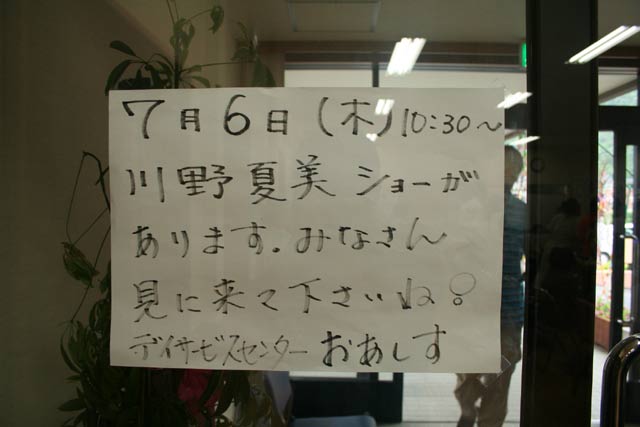 7月6日(木)10:30～
川野夏美ショーが
あります。みなさん
見に来て下さいね!
デイサービスセンターおあしす